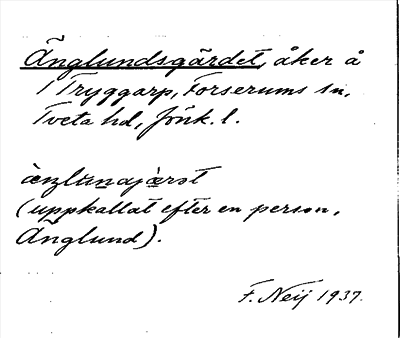 Änglundsgärdet, åker å
1 Tryggarp, Forserums sn,
Tveta hd, Jönk. l.
(uppkallat efter en person,
Änglund).
F. Neij 1937.